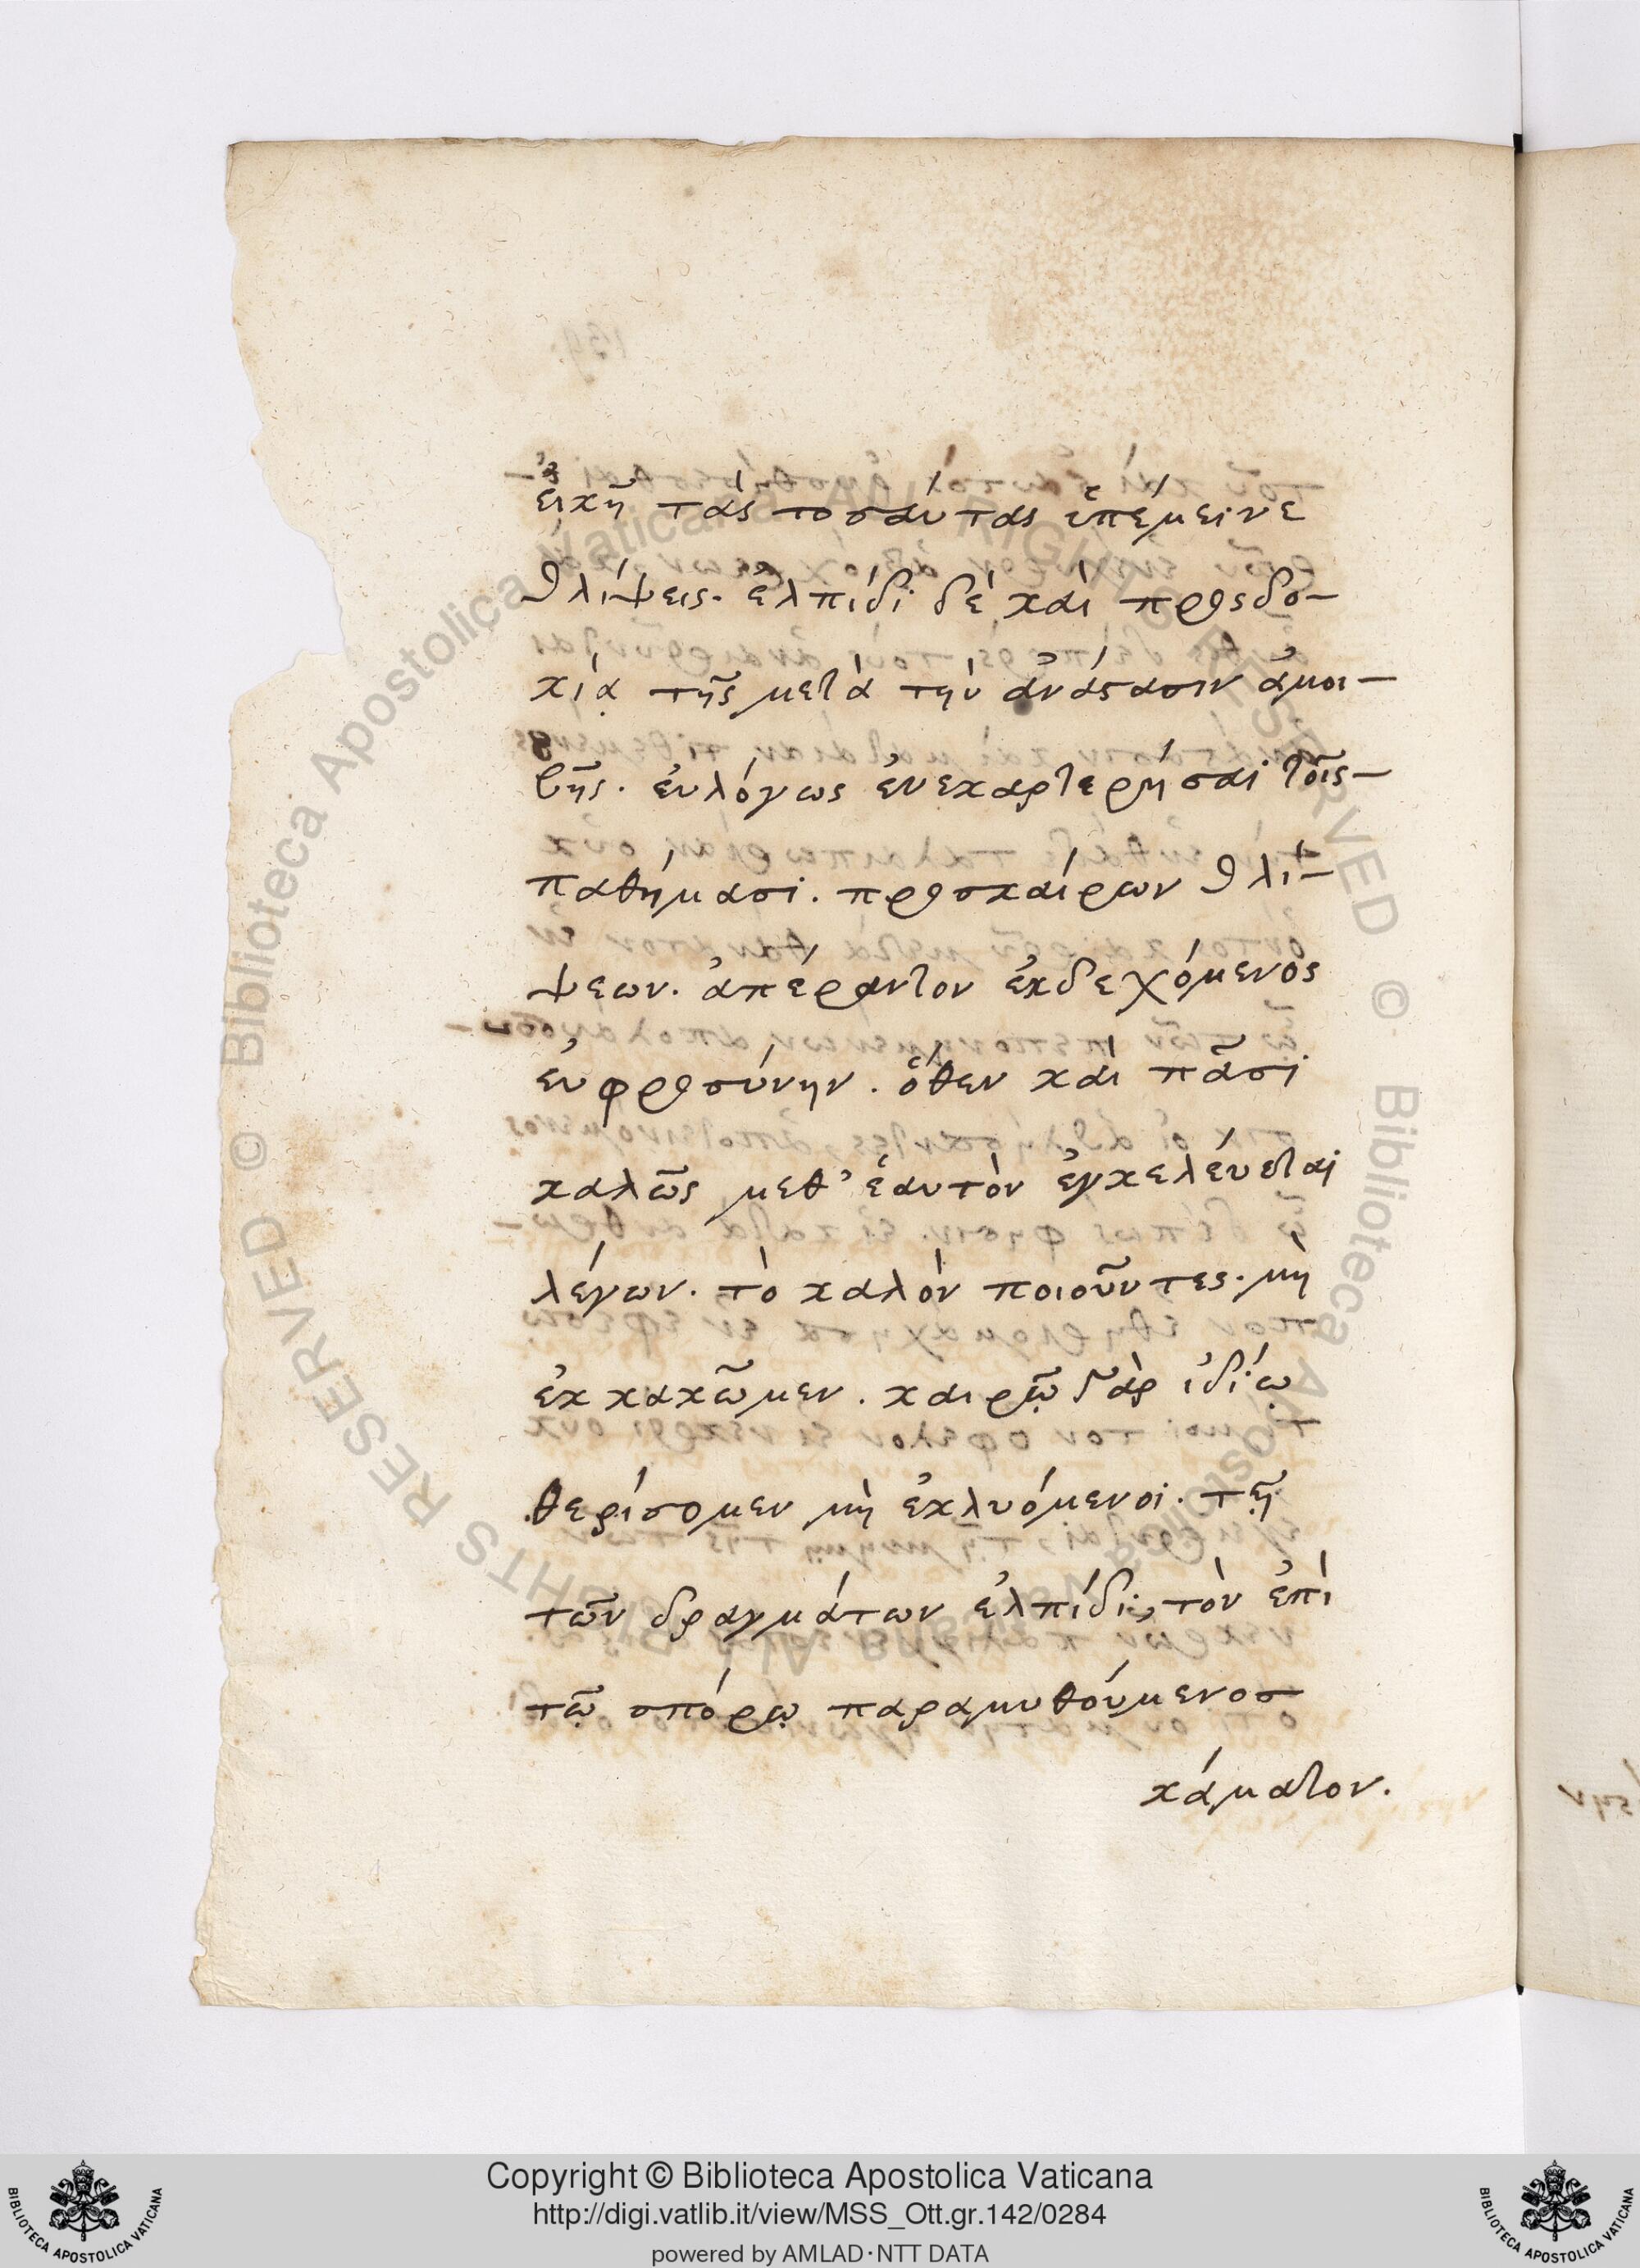 εἰκῆ τὰς τοσάυτας ὑπέμεινε
θλίψεις. ἐλπίδι δὲ κὰι προσδο-
κίᾳ τῆς μετὰ τὴν ἀνάστασιν ἀμοι-
βῆς. ἐυλόγως ἐνεκαρτερήσαι τοῖς-
παθήμασι. προσκαίρων θλί-
ψεων. ἀπέραντον ἐκδεχόμενος
ἐυφροσύνην. ὅθεν κὰι πᾶσι
καλῶς μεθ' ἑαυτὸν ἐγκελέυεται
λέγων. τὸ καλὸν ποιοῦντες. μὴ
ἐκκακῶμεν. καιρῷ γὰρ ἰδίῳ
θερίσομεν μὴ ἐκλυόμενοι. τῇ
τῶν δραγμάτων ἐλπίδι, τὸν ἐπὶ
τῷ σπόρῳ παραμυθούμενοσ
κάματον.
Copyright © Biblioteca Apostolica Vaticana
http://digi.vatlib.it/view/MSS_Ott.gr.142/0284
powered by AMLAD·NTT DATA